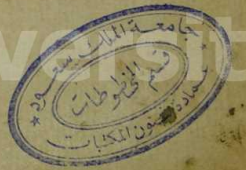 جامعة الملك سعود
قسم المخطوطات
عمادة شئون المكتبات
versit